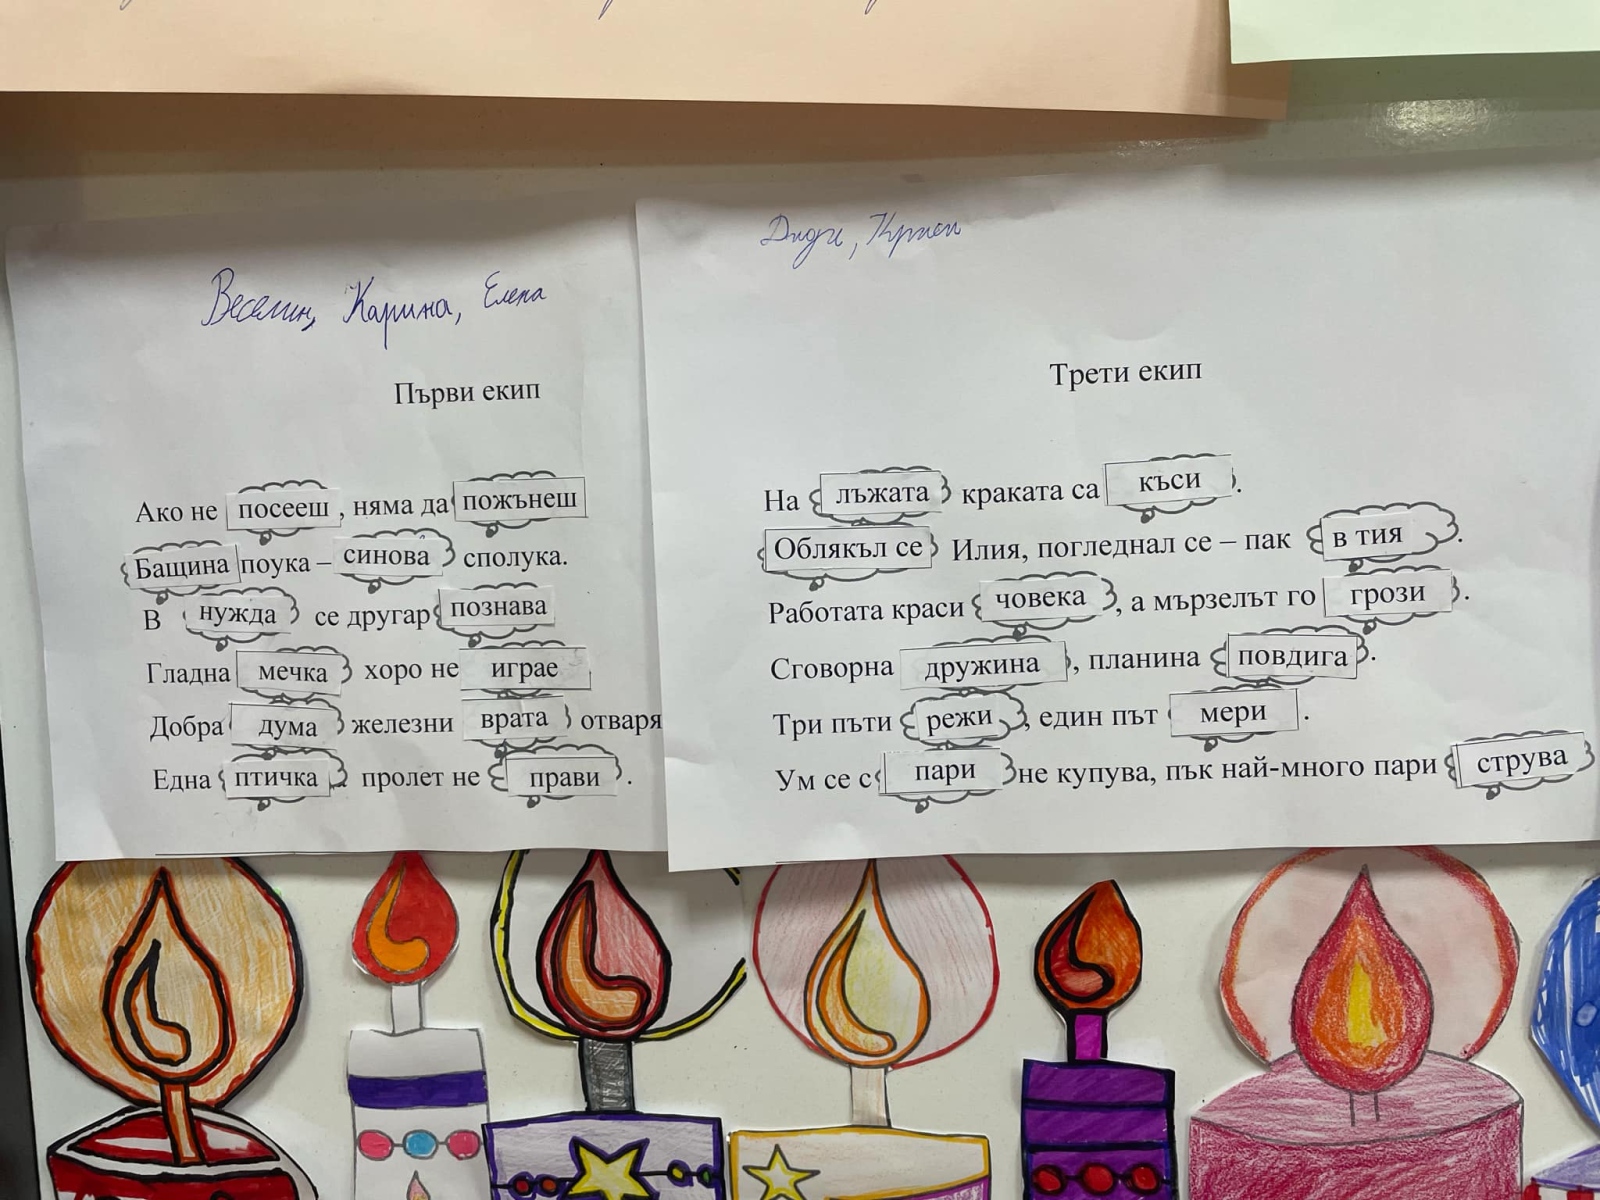 Веселин, Карина, Елена
Първи екип
Ако не посееш, няма да пожънеш
Бащина поука – синова сполука.
В нужда се другар познава
Гладна мечка хоро не играе
Добра дума железни врата отваря
Една птичка пролет не прави.
Диди, Криси
Трети екип
На лъжата краката са къси.
Облякъл се Илия, погледнал се – пак в тия.
Работата краси човека, а мързелът го грози.
Сговорна дружина, планина повдига.
Три пъти режи, един път мери.
Ум се с пари не купува, пък най-много пари струва